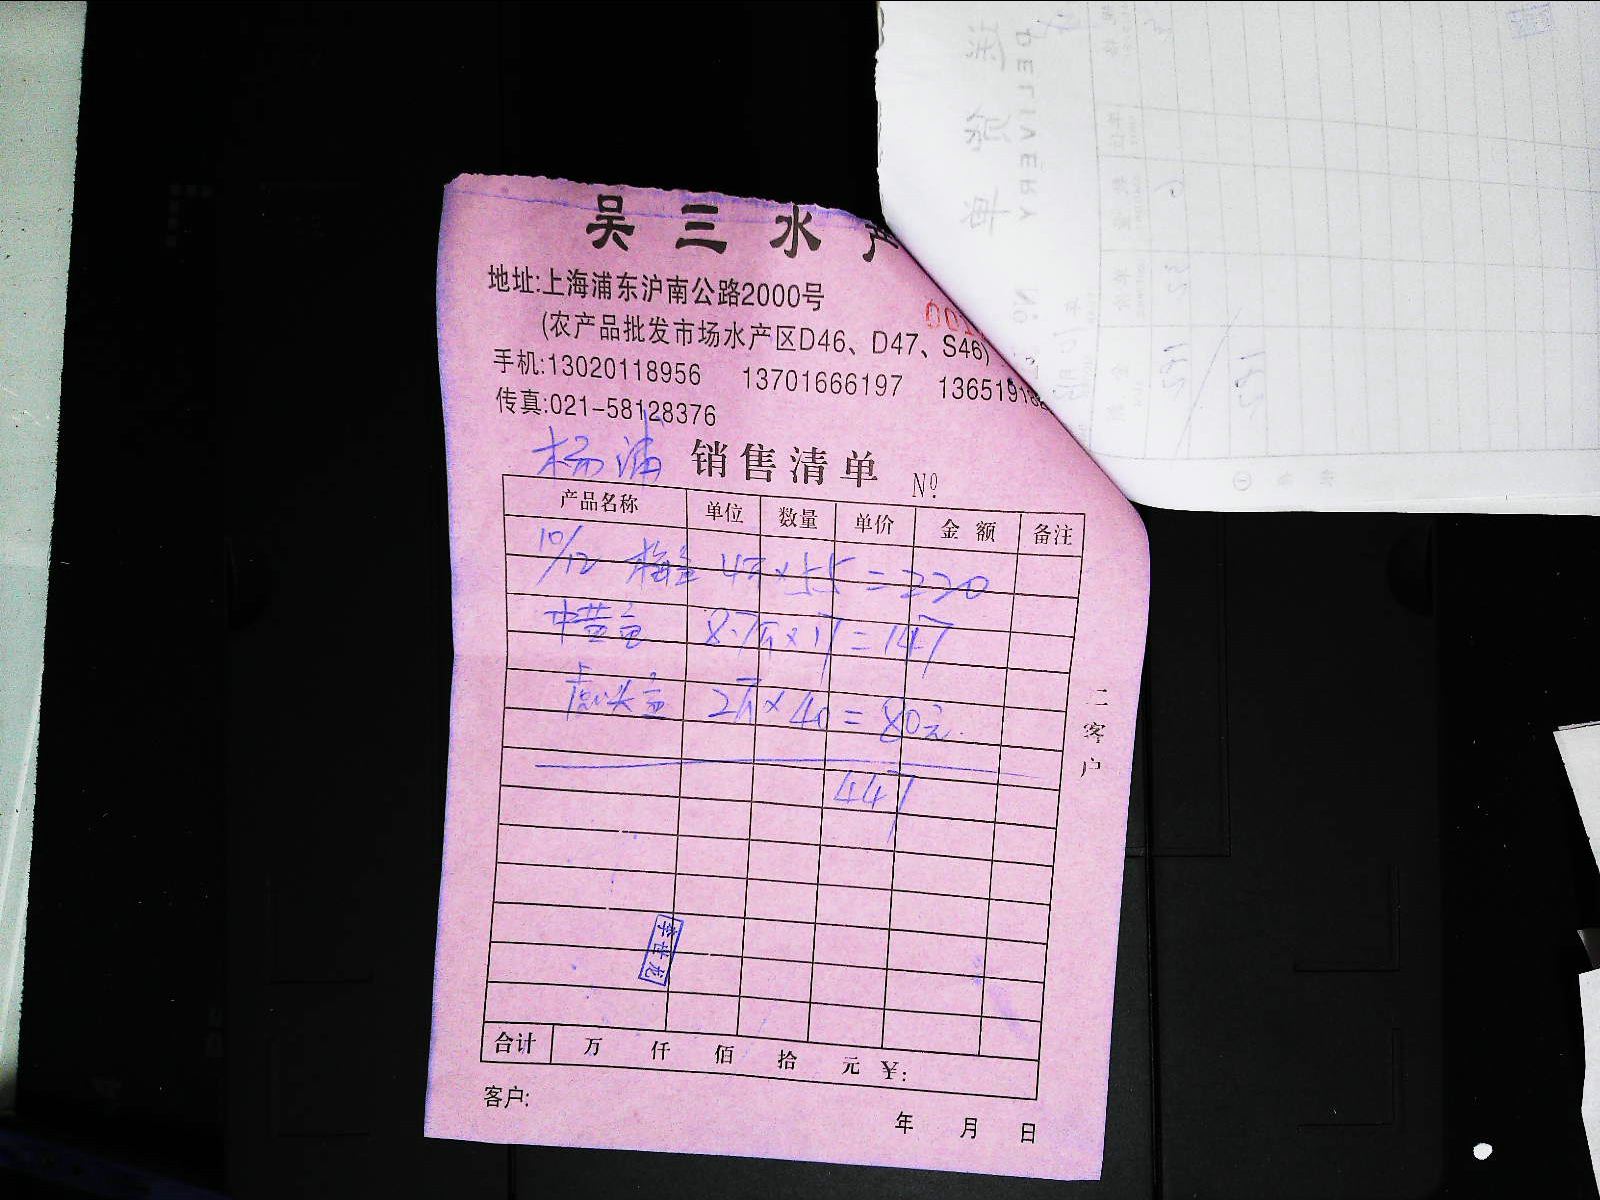 吴三水产
地址:上海浦东沪南公路2000号
(农产品批发市场水产区D46、D47、S46)
手机:13020118956 13701666197
传真:021-58128376
杨浦 销售清单 Nº
产品名称 单位 数量 单价 金额 备注
10/12 梅鱼 4斤×55=220
中黄鱼 8.7斤×17=147
虎头鱼 2斤×40=80元
447
李世龙
合计 万 仟 佰 拾 元 ¥:
客户:
年 月 日
二客户
DELIVERY Nº